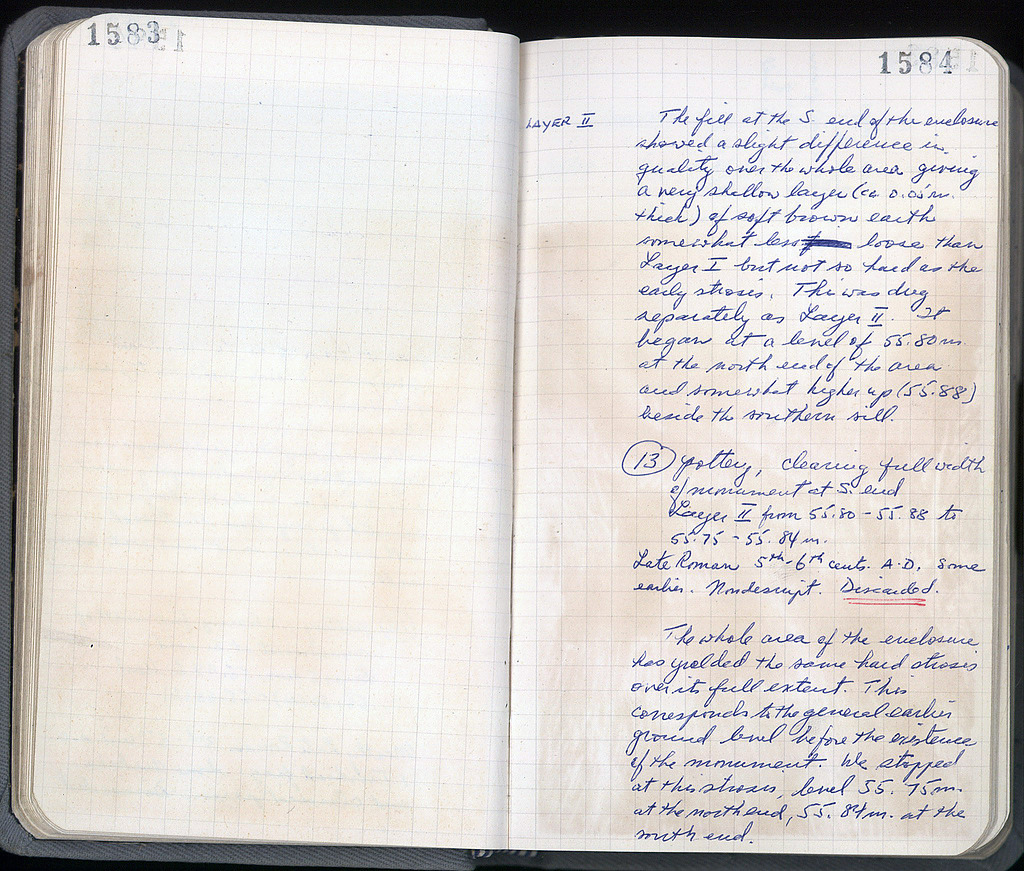 1583
1584
LAYER II
The fill at the S. end of the enclosure
showed a slight difference in
quality over the whole area giving
a very shallow layer (ca 0.05m.
thick) of soft brown earth
somewhat less loose than
Layer I but not so hard as the
early strosis. This was dug
separately as Layer II. It
began at a level of 55.80m.
at the north end of the area
and somewhat higher up (55.88)
beside the southern sill.
13 pottery, clearing full width
of monument at S. end
Layer II from 55.80 - 55.88 to
55.75 - 55.84m.
Late Roman 5th-6th cents. A.D. some
earlier. Nondescript. Discarded.
The whole area of the enclosure
has yielded the same hard strosis
over its full extent. This
corresponds to the general earlier
ground level before the existence
of the monument. We stopped
at this strosis, level 55.75m.
at the north end, 55.84m. at the
south end.